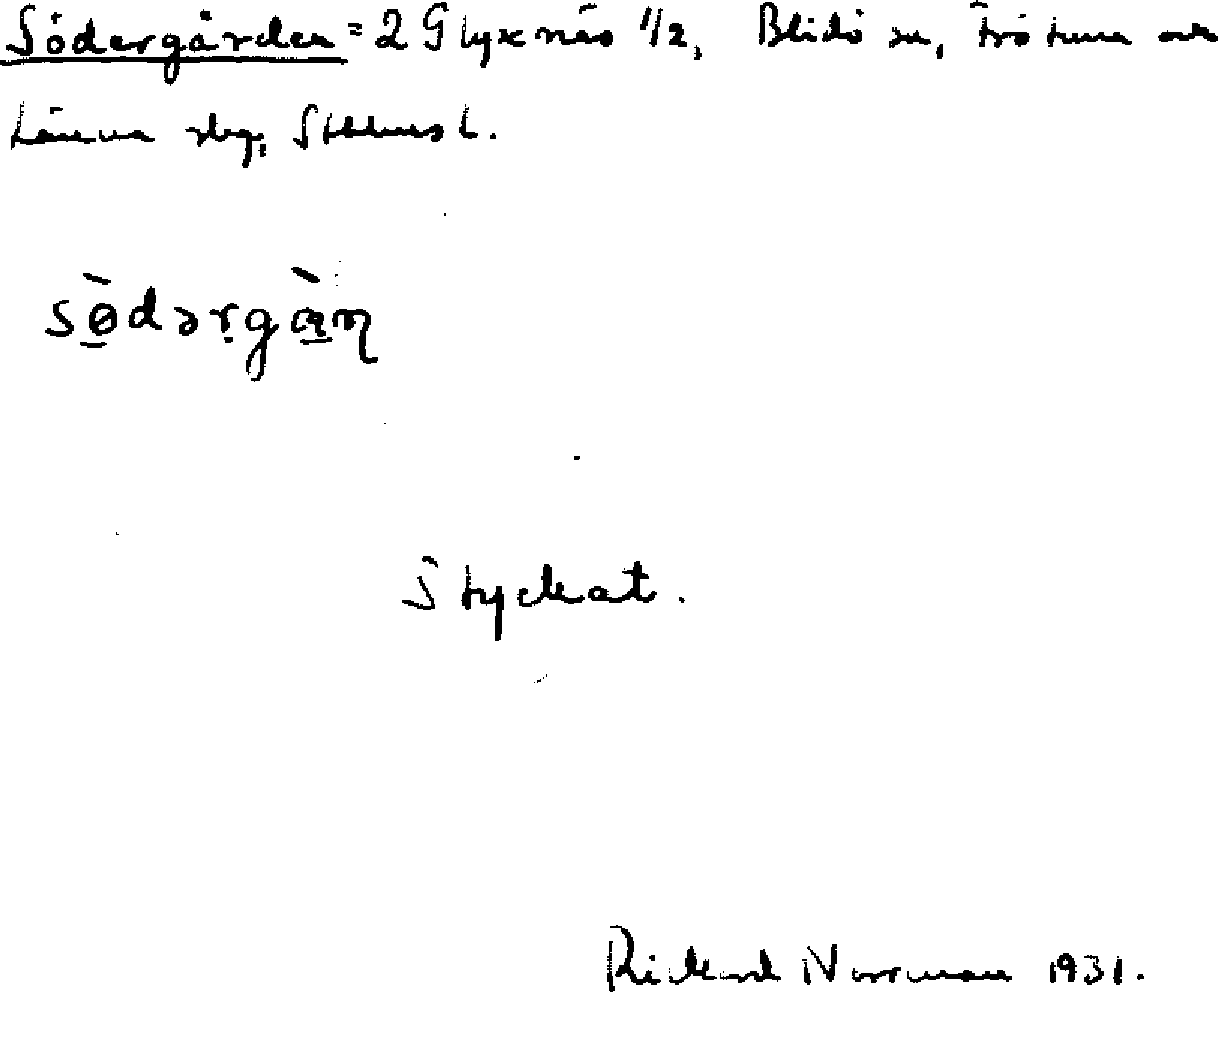 Södergården = 2 Glyxnäs 1/2, Blidö sn, Frötuna och
Länna slg, Sthlms l.
sø̀dərgɑ̀ɳ
Styckat.
Rickard Norrman 1931.